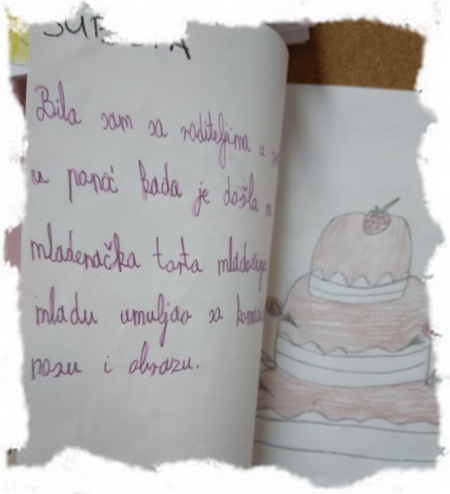 SUBOTA
Bila sam sa roditeljima u
u ponoć kada je došla
mladenačka torta mladoženja
mladu umuljao sa
nosu i obrazu.